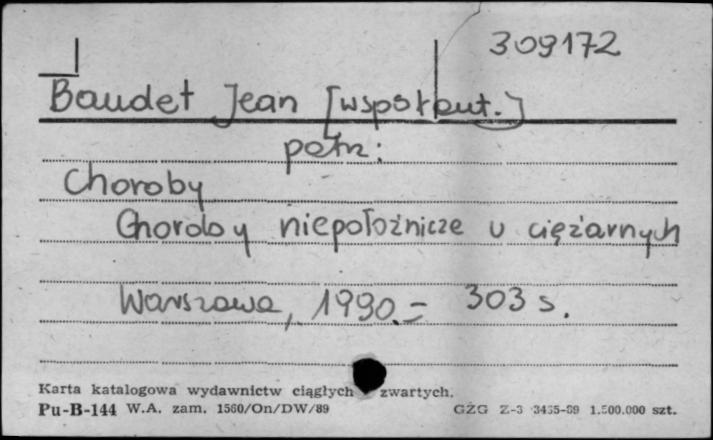 309172
Baudet Jean [współaut.]
patrz:
Choroby
Choroby niepołożnicze u ciężarnych
Warszawa, 1990.- 303 s.
Karta katalogowa wydawnictw ciągłych zwartych.
Pu-B-144 W.A. zam. 1560/On/DW/89 GZG Z-3 3435-89 1.500.000 szt.